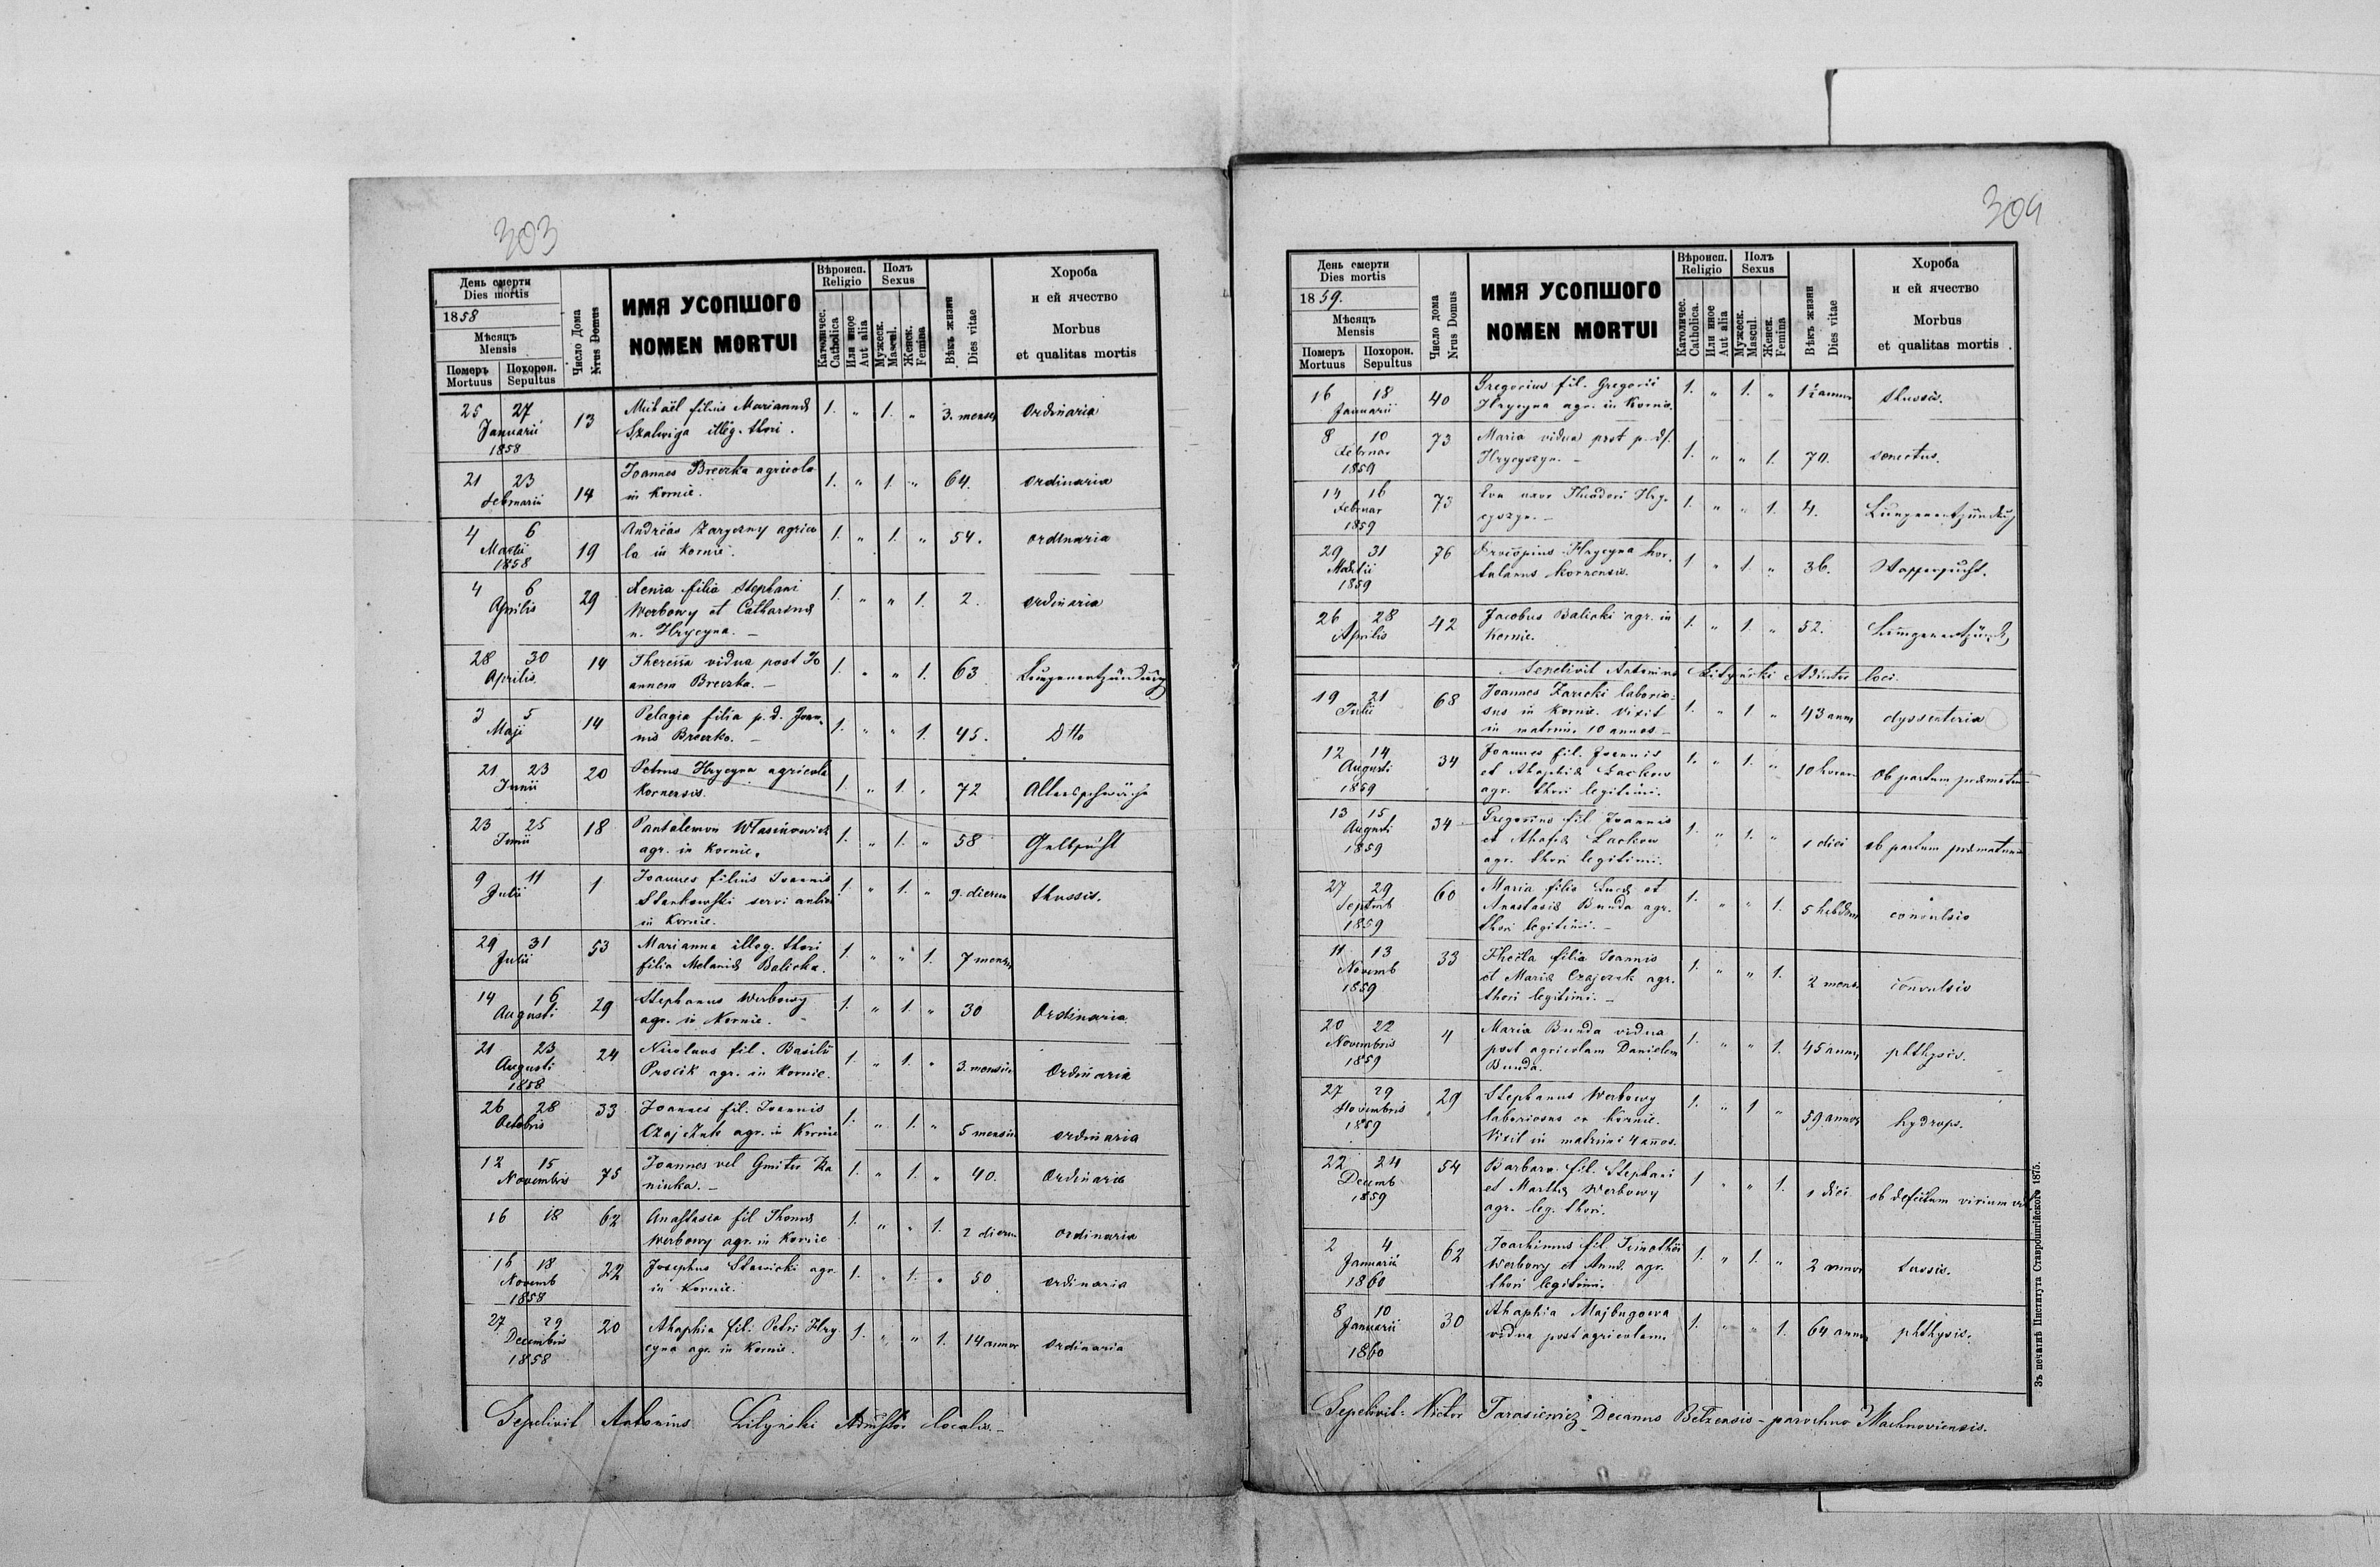 303
День смерти
Dies mortis
1858
Мѣсяцъ
Mensis
Померъ Похорон.
Mortuus Sepultus
Число Дома
Nrus Domus
ИМЯ УСОПШОГО
NOMEN MORTUI
Вѣроисп.
Religio
Католичес.
Catholica
Или иное
Aut alia
Полъ
Sexus
Мужеск.
Mascul.
Женск.
Femina
Вѣкъ жизни
Dies vitae
Хороба
и ей ячество
Morbus
et qualitas mortis
25 27 13 Michaël filius Mariannæ 1. " 1. " 3. menses Ordinaria
Januarii Szalwiga illeg. thori.
1858
21 23 14 Joannes Breczka agricola 1. " 1. " 64. ordinaria
Februarii in Kornie.
4 6 19 Andreas Zaryczny agrico 1. " 1. " 54. ordinaria
Martii la in Kornie.
1858
4 6 29 Xenia filia Stephani 1. " " 1. 2. ordinaria
Aprilis Werbowy et Catharinæ
n. Hrycyna. –
28 30 14 Theressa vidua post Jo 1. " " 1. 63 Lungenentzündung
Aprilis annem Breczka. –
3 5 14 Pelagia filia p. d. Joan- 1. " " 1. 45. Dtto
Maji nis Breczko. –
21 23 20 Petrus Hrycyna agricola 1. " 1. " 72 Altersschwäche
Junii Kornensis.
23 25 18 Pantalemon Wlasinowicz 1. " 1. " 58 Gelbsucht
Junii agr. in Kornie.
9 11 1 Joannes filius Joannis 1. " 1. " 9. dierum thussis.
Julii Stankowski servi aulici
in Kornie.
29 31 53 Marianna illeg. thori 1. " " 1. 7 menses
Julii filia Melaniæ Balicka.
14 16 29 Stephanus Werbowy 1. " 1. " 30 Ordinaria
Augusti agr. in Kornie. –
21 23 24 Nicolaus fil. Basilii 1. " 1. " 3. mensium Ordinaria
Augusti Procik agr. in Kornie.
1858
26 28 33 Joannes fil. Joannis 1. " 1. " 5 mensium ordinaria
Octobris Czajczuk agr. in Kornie
12 15 75 Joannes vel Gmiter Ka 1. " 1. " 40. Ordinaria
Novembris niuka. –
16 18 62 Anastasia fil Thomæ 1. " " 1. 2 dierum ordinaria
Werbowy agr. in Kornie
16 18 22 Josephus Stawicki agr. 1. " 1. " 50 ordinaria
Novemb in Kornie.
1858
27 29 20 Ahaphia fil. Petri Hry 1. " " 1. 14 annor ordinaria
Decembris cyna agr. in Kornie.
1858
Sepelivit Antonius Lityński Admstor localis. –
304
День смерти
Dies mortis
1859.
Мѣсяцъ
Mensis
Померъ Похорон.
Mortuus Sepultus
Число дома
Nrus Domus
ИМЯ УСОПШОГО
NOMEN MORTUI
Вѣроисп.
Religio
Католичес.
Catholica.
Или иное
Aut alia
Полъ
Sexus
Мужеск.
Mascul.
Женск.
Femina
Вѣкъ жизни
Dies vitae
Хороба
и ей ячество
Morbus
et qualitas mortis
16 18 40 Gregorius fil. Gregorii 1. " 1. " 1½ annor thussis.
Januarii Hrycyna agr. in Kornie.
8 10 73 Maria vidua post p. df. 1. " " 1. 70. senectus.
Februar Hrycyszyn. –
1859
14 16 73 Eva uxor Theodori Hry- 1. " " 1. 4. Lungenentzündung
Februar cyszyn. –
1859
29 31 76 Procopius Hrycyna hor- 1 " 1. " 36. Wassersucht.
Martii tulanus Kornensis.
1859
26 28 42 Jacobus Balicki agr. in 1. " 1. " 52. Lungenentzünd.
Aprilis Kornie.
Sepelivit Antonius Lityński Admster loci.
19 21 68 Joannes Zaricki laborio- 1. " 1. " 43 ann dyssenteria
Julii sus in Kornie. Vixit
in matrim. 10 annos –
12 14 34 Joannes fil. Joannis 1. " 1. " 10 horar Ob partum præmatur
Augusti et Ahaphiæ Lackow
1859 agr. thori legitimi.
13 15 34 Gregorius fil Joannis 1. " 1. " 1 diei ob partum præmatur
Augusti et Ahafiæ Lackow
1859 agr. thori legitimi.
27 29 60 Maria filia Lucæ et 1. " " 1. 5 hebdom convulsio
Septemb Anastasiæ Bunda agr.
1859 thori legitimi. –
11 13 33 Thecla filia Joannis 1. " " 1. 2 mens. convulsio
Novemb et Mariæ Czajczuk agr.
1859 thori legitimi. –
20 22 4 Maria Bunda vidua 1. " " 1. 45 annor phthysis.
Novembris post agricolam Danielem
1859 Bunda.
27 29 29 Stephanus Werbowy 1. " 1 " 59. annor hydrops.
Novembris laboriosus ex Kornie.
1859 Vixit in matrimi 4 anos.
22 24 54 Barbara fil. Stephani 1 " " 1. 1 diei ob defectum virium vit.
Decemb et Marthæ Werbowy
1859 agr. leg. thori.
2 4 62 Joachimus fil. Timothei 1. " 1. " 2 annor tussis.
Januarii Werbowy et Annæ agr.
1860 thori legitimi.
8 10 30 Ahaphia Majbugowa 1. " " 1. 64 annor phthysis.
Januarii vidua post agricolam.
1860
Sepelivit: Victor Tarasiewicz Decanus Belzensis – parochus Machnoviensis.
Зъ печатнѣ Института Ставропигійского 1875.